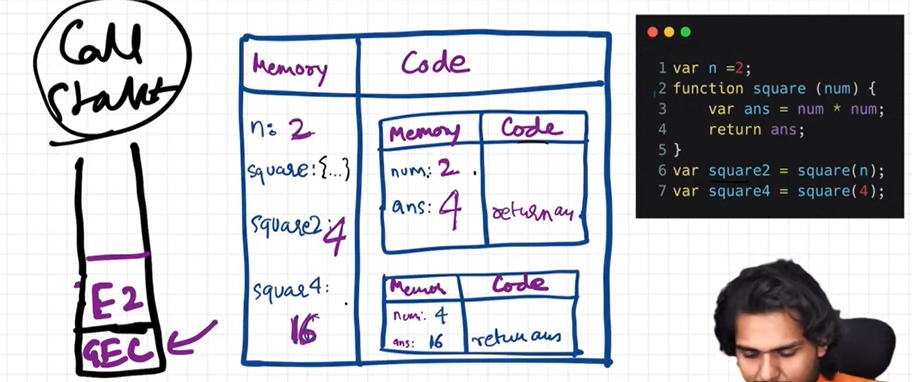 Call
Stakt
E2
GEC
Memory
Code
n: 2
square:{...}
square2:4
squar4:
16
Memory
Code
num: 2
ans: 4
return an
Memor
Code
num: 4
ans: 16
return ans
1 var n =2;
2 function square (num) {
3 var ans = num * num;
4 return ans;
5 }
6 var square2 = square(n);
7 var square4 = square(4);